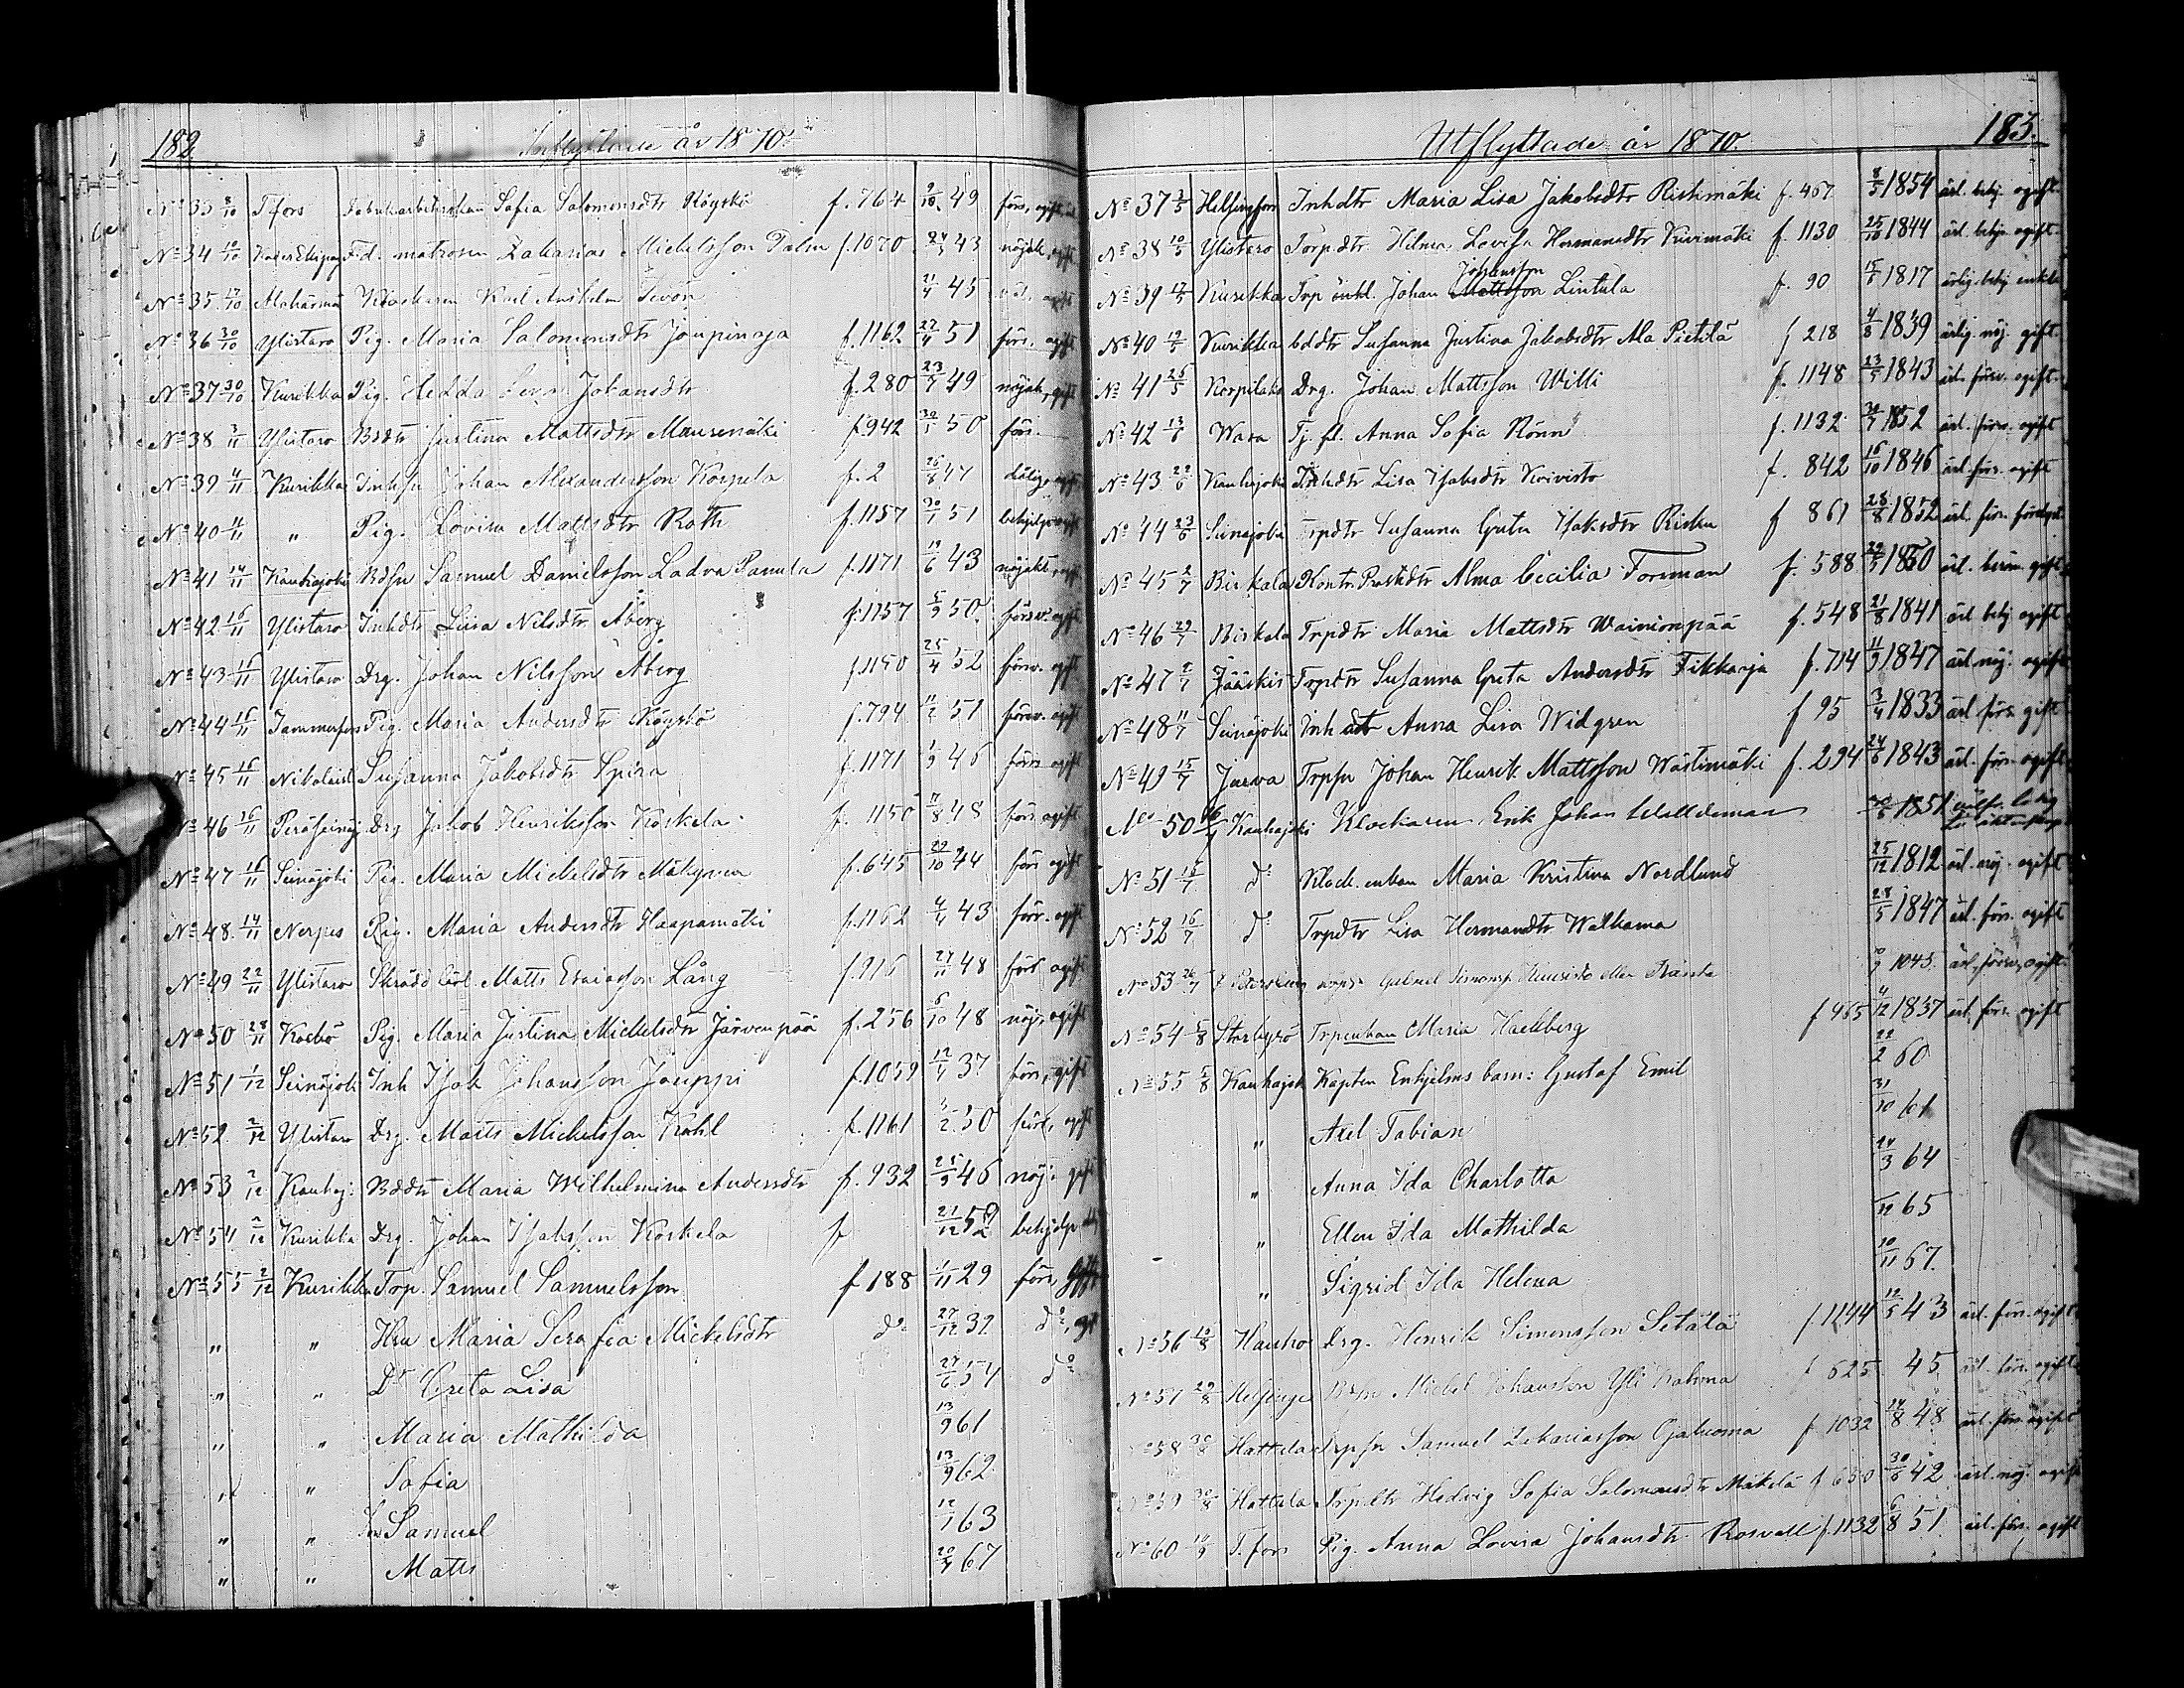 182
Inflyttade år 1870.
No 33 8/10 Tfors Sofia Salomonsdtr f. 764 9/10 49 förs.
No 34 10/10 Fd. matrosen Zakarias Mickelsson Palm f. 1070 43 nöjakt, ogift
No 35 17/10 Alahärmä Klockaren Karl Anshelm 21/4 45
No 36 30/10 Ylistaro Pig. Maria Salomonsdtr Joupinaja f. 1162 27/4 51 förs. ogift
No 37 30/10 Kurikka Pig. Hedda Johansdtr f. 280 23/7 49 nöjakt, ogift
No 38 3/11 Ylistaro Bdtr Justina Mattsdtr f. 942 30/1 50 förs.
No 39 4/11 Kurikka Inhsn Johan Alexandersson Korpela f. 2 26/6 47 dålig, ogift
No 40 11/11 " Pig. Lovisa Mattsdtr Roth f. 1157 30/1 51
No 41 14/11 Kauhajoki Bdsn Samuel Danielsson Ladva Panula f. 1171 19/6 43 nöjakt, ogift
No 42 16/11 Ylistaro Inhdtr Liisa Nilsdtr Åberg f. 1157 5/9 50. försv. ogift
No 43 16/11 Ylistaro Drg. Johan Nilsson Åberg f. 1150 25/4 52 försv. ogift
No 44 16/11 Tammerfors Pig. Maria Andersdtr f. 794 11/2 51 försv. ogift
No 45 16/11 Nikolaist Susanna Jakobsdtr Spira f. 1171 1/9 46 förs. ogift
No 46 16/11 Peräseinäj Drg Jakob Henriksson Koskela f. 1150 11/8 48 förs. ogift
No 47 16/11 Seinäjoki Pig. Maria Mickelsdtr f. 645 29/10 44 förs ogift
No 48. 14/11 Nerpes Pig. Maria Andersdtr Haapamäki f. 1162 4/4 43 förs. ogift
No 49 22/11 Ylistaro Skrädd lärl. Matts Lång f. 916 27/11 48 förs ogift
No 50 28/11 Pig. Maria Justina Mickelsdtr Järvenpää f. 256 6/10 48 nöj, ogift
No 51 1/12 Seinäjoki Inh Isak Johansson Jouppi f. 1059 37 förs, gift
No 52. 2/12 Ylistaro Drg. Matts Mickelsson f. 1161 3/2 50 förs, ogift
No 53 2/12 Kauhaj: Bddtr Maria Wilhelmina Andersdtr f. 932 46 nöj.
No 54 2/12 Kurikka Drg. Johan Isaksson Koskela f 21/12 52
No 55 2/12 Kurikka Trp. Samuel Samuelsson f 188 1/11 29 förs, gift
" " Hru Maria Serafia Mickelsdtr do 27/12 32 do,
" " Dr Greta Lisa 27/6 54 do
" " Maria Mathilda 13/9 61
" " Sofia 13/9 62
" " Son Samuel 12/1 63
" " Matts 67
Utflyttade år 1870.
183.
No 37 3/5 Helsingfors Inhdtr Maria Lisa Jakobsdtr Ristimäki f. 467 8/5 1854 ärl. behj. ogift
No 38 10/5 Ylistaro Torpdtr. Hilma Lovisa Hermansdtr Kivimäki f. 1130 25/10 1844 ärl. behj. ogift
Johansson
No 39 17/5 Kurikka Trp enkl. Johan Mattsson Lintula f. 90 15/5 1817 ärlig behj enkl
No 40 19/5 Kurikka bddtr Susanna Justina Jakobsdtr Ala Pietilä f 218 4/8 1839 ärlig. nöj. gift
No 41 25/5 Korpilaks Drg. Johan Mattsson Willi f. 1148 23/5 1843 ärl. försv. ogift
No 42 13/6 Wasa Tj. fl. Anna Sofia Rönn f. 1132. 1852 ärl. försv. ogift
No 43 22/6 Kauhajoki Inhdtr Lisa Isaksdtr Koivisto f. 842 16/10 1846 ärl. förs. ogift
No 44 23/6 Seinäjoki Trpdtr Susanna Greta Isaksdtr Risku f 861 28/8 1852 ärl. förs.
No 45 2/7 Birkala Kontr. Prostdtr Alma Cecilia Forsman f. 588 1850 ärl. beröm. ogift
No 46 29/7 Birkala Trpdtr Maria Mattsdtr Wainionpää f. 548 21/8 1841 ärl behj ogift
No 47 2/7 Jääskis Trpdtr Susanna Greta Andersdtr Tikkaoja f. 714 11/9 1847 ärl nöj. ogift
No 48 11/7 Seinäjoki Inh dtr Anna Lisa Widgren f 95 3/4 1833 ärl. förs gift
No 49 15/7 Jurva Trpsn Johan Henrik Mattsson Wästimäki f. 294 24/6 1843 ärl. förs. ogift
No 50 16/7 Kauhajoki Klockaren Erik Johan Walldeman 1851
No 51 16/7 do Klock. enkan Maria Kristina Nordlund 25/12 1812 ärl. nöj. ogift
No 52 16/7 do Trpdtr Lisa Hermansdtr Walkama 28/5 1847 ärl. förs. ogift
No 53 26/7 Petersburg Gabriel Simonss. eller 1843. ärl, försv, ogift.
No 54 5/8 Storkyrö Trpenkan Maria Hackberg f 465 4/12 1837 ärl. förs. ogift
No 55 5/8 Kauhajok Kapten Enhjelms barn: Gustaf Emil 22/2 60
" Axel Fabian 31/10 61
" Anna Ida Charlotta 24/3 64
" Ellen Ida Mathilda /12 65
" Sigrid Ida Helena 10/11 67.
No 56 10/8 Hauho Drg. Henrik Simonsson Setälä f. 1144 12/5 43 ärl. förs. ogift
No 57 29/8 Helsinge Mickel Johansson Yli f 625 45 ärl. förs. ogift
No 58 30/8 Hattula Trpsn Samuel Zakariasson Ojaluoma f 1032 24/8 48 ärl. förs. ogift
No 59 30/8 Hattula Trpdtr Hedvig Sofia Salomonsdtr Mäkelä f 650 30/6 42 ärl. nöj. ogift
No 60 T.fors Pig. Anna Lovisa Johansdtr Rosvall f. 1132 6/8 51. ärl. förs. ogift